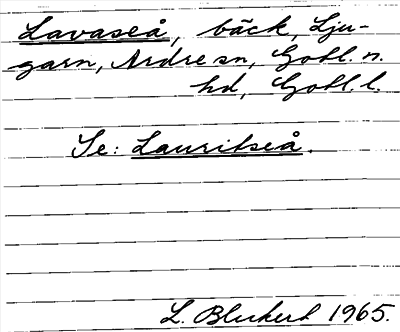 Lavaseå, bäck, Lju-
garn, Ardre sn, Gotl. n.
hd, Gotl. l.
Se: Lauritseå.
L. Bleckert 1965.